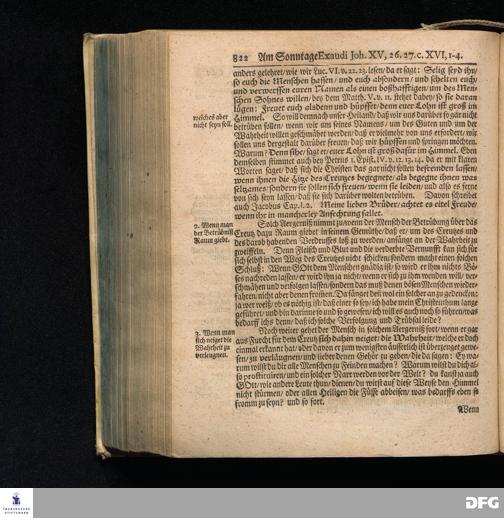 822 Am Sonntage Exaudi Joh. XV, 26. 27. c. XVI, 1-4.
anders gelehret/ wie wir Luc. VI. v. 22. 23. lesen/ da er sagt: Selig seyd ihr/
so euch die Menschen hassen/ und euch absondern/ und schelten euch/
und verwerffen euren Namen als einen boßhafftigen/ um des Men-
schen Sohnes willen/ bey dem Matth. V. v. 11. stehet dabey/ so sie daran
lügen: Freuet euch alsdenn und hüpffet/ denn euer Lohn ist groß in
Himmel. So will demnach unser Heiland/ daß wir uns darüber so gar nicht
welches aber
nicht seyn soll.
betrüben sollen/ wenn wir um seines Namens/ um des Guten und um der
Wahrheit willen geschmähet werden/ daß er vielmehr von uns erfordert/ wir
sollen uns dergestalt darüber freuen/ daß wir hüpffen und springen möchten.
Warum? Denn sihe/ sagt er/ euer Lohn ist groß dafür im Himmel. Eben
demselben stimmet auch bey Petrus 1. Epist. IV. v. 12. 13. 14. da er mit klaren
Worten saget/ daß sich die Christen das gar nicht sollen befremden lassen/
wenn ihnen die Hitze des Creutzes begegnete/ als begegne ihnen was
seltzames/ sondern sie sollen sich freuen/ wenn sie leiden/ und also es ferne
von sich seyn lassen/ daß sie sich darüber wolten betrüben. Davon schreibet
auch Jacobus Cap. I. 2. Meine lieben Brüder/ achtet es eitel Freude/
wenn ihr in mancherley Anfechtung fallet.
2. Wenn man
der Betrübniß
Raum giebt.
Solch Aergerniß nimmt zu/ wenn der Mensch der Betrübung über das
Creutz dazu Raum giebet in seinem Gemüthe/ daß er/ um des Creutzes und
des darob habenden Verdrusses loß zu werden/ anfänget an der Wahrheit zu
zweiffeln. Denn Fleisch und Blut und die verderbte Vernunfft kan sich für
sich selbst in den Weg des Creutzes nicht schicken/ sondern macht einen solchen
Schluß: Wenn GOtt dem Menschen gnädig ist/ so wird er ihm nichts Bö-
ses nachreden lassen/ er wird ihn ja nicht/ wenn er sich zu ihm wenden will/ ver-
schmähen und verfolgen lassen/ sondern das muß denen bösen Menschen wieder-
fahren/ nicht aber denen frommen. Da fänget deß wol ein solcher an zu gedencken:
ja wer weiß/ ob es nöthig ist/ daß einer so sey/ ich habe mein Christenthum lange
geführet/ und bin darinne so und so gewesen/ ich will es auch noch so führen/ was
bedarff ichs denn/ daß ich solche Verfolgung und Trübsal leide?
3. Wenn man
sich neiget die
Wahrheit zu
verleugnen.
Noch weiter gehet der Mensch in solchem Aergerniß fort/ wenn er gar
aus Furcht für dem Creutz sich dahin neiget/ die Wahrheit/ welche er doch
einmal erkannt hat/ oder davon er zum wenigsten äusserlich ist überzeuget gewe-
sen/ zu verläugnen/ und lieber denen Gehör zu geben/ die da sagen: Ey wa-
rum wilst du dir alle Menschen zu Feinden machen? Warum wilst du dich al-
so prostituiren/ und ein solcher Narr werden vor der Welt? du kanst ja auch
GOtt/ wie andere Leute thun/ dienen/ du wirst auf diese Weyse den Himmel
nicht stürmen/ oder allen Heiligen die Füsse abbeissen/ was bedarffs eben so
fromm zu seyn? und so fort.
Wenn
FRANCKESCHE
STIFTUNGEN
DFG